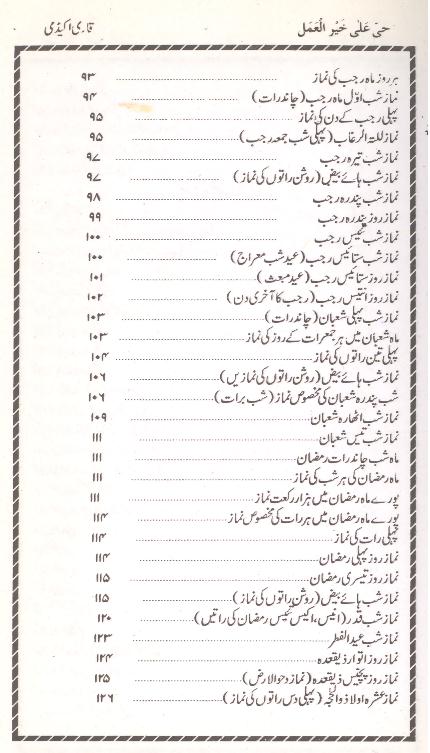 حیّ علیٰ خَیْر الْعَمَل قاری اکیڈمی
ہر روز ماہ رجب کی نماز ۹۳
نماز شب اوّل ماہ رجب (چاند رات) ۹۴
پہلی رجب کے دن کی نماز ۹۵
نماز للۃ الرغاب (پہلی شب جمعہ رجب) ۹۵
نماز شب تیرہ رجب ۹۷
نماز شب ہائے بیض (روشن راتوں کی نماز) ۹۷
نماز شب پندرہ رجب ۹۸
نماز روز پندرہ رجب ۹۹
نماز شب تئیس رجب ۱۰۰
نماز شب ستائیس رجب (عید شب معراج) ۱۰۰
نماز روز ستائیس رجب (عید مبعث) ۱۰۱
نماز روز انتیس رجب (رجب کا آخری دن) ۱۰۲
نماز شب پہلی شعبان (چاند رات) ۱۰۳
ماہ شعبان میں ہر جمعرات کے روز کی نماز ۱۰۳
پہلی تین راتوں کی نماز ۱۰۴
نماز شب ہائے بیض (روشن راتوں کی نمازیں) ۱۰۶
شب پندرہ شعبان کی مخصوص نماز (شب برات) ۱۰۶
نماز شب اٹھارہ شعبان ۱۰۹
نماز شب تیس شعبان ۱۱۱
ماہ شب چاند رات رمضان ۱۱۱
ماہ رمضان کی ہر شب کی نماز ۱۱۱
پورے ماہ رمضان میں ہزار رکعت نماز ۱۱۱
پورے ماہ رمضان میں ہر رات کی مخصوص نماز ۱۱۴
پہلی رات کی نماز ۱۱۴
نماز روز پہلی رمضان ۱۱۴
نماز روز تیسری رمضان ۱۱۵
نماز شب ہائے بیض (روشن راتوں کی نماز) ۱۱۵
نماز شب قدر (انیس، اکیس تئیس رمضان کی راتیں) ۱۲۰
نماز شب عید الفطر ۱۲۳
نماز روز اتوار ذیقعدہ ۱۲۴
نماز روز پچیس ذیقعدہ (نماز دحو الارض) ۱۲۵
نماز عشرہ اولا ذوالحجہ (پہلی دس راتوں کی نماز) ۱۲۶